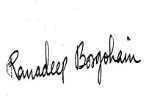 Ranadeep Borgohain